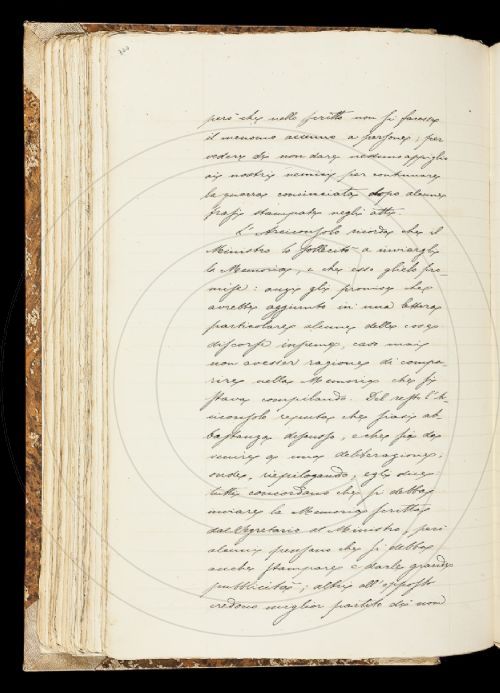 però che nello scritto non si facesse
il menomo accenno a persone; per
vedere di non dare nessun appiglio
ai nostri nemici per continuare
la guerra cominciata dopo alcune
frasi stampate negli atti.
L'Arciconsolo ricorda che il
Ministro lo sollecitò a inviargli
la Memoria, e che esso gliela pro-
mise: anzi gli promise che
avrebbe aggiunto in una lettera
particolare alcune delle cose
discorse insieme, caso mai
non avesser ragione di compa-
rire nella Memoria che si
stava compilando. Del resto l'Ar-
ciconsolo reputa che siasi ab-
bastanza discusso, e che sia da
venire a una deliberazione;
onde, riepilogando, egli dice:
tutti concordano che si debba
inviare la Memoria scritta
dal Segretario al Ministro, però
alcuni pensano che si debba
anche stampare e darle grande
pubblicità; altri all'opposto
credono miglior partito di non